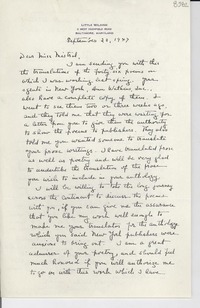 LITTLE BUILDING
BALTIMORE, MARYLAND
September 24, 1947
Dear Miss Mistral,
I am sending you with this
the translations of the forty six poems on
which I was working last spring. Your
agents in New York, Ann Watkins Inc.,
also have a complete copy of them. I
went to see them two or three weeks ago
and they told me that they were waiting for
a letter from you to give them the authority
to show the poems to publishers. They also
told me you wanted someone to translate
your prose writings. I have translated prose
as well as poetry and will be very glad
to undertake the translation of the prose
you wish to include in your anthology.
I will be willing to take the long journey
across the continent to discuss the poems
with you, if you can give me the assurance
that you like my work well enough to
make me your translator for the anthology
which you said New York publishers were
anxious to bring out. I am a great
admirer of your poetry, and should feel
much honored if you will authorize me
to go on with this work which I have